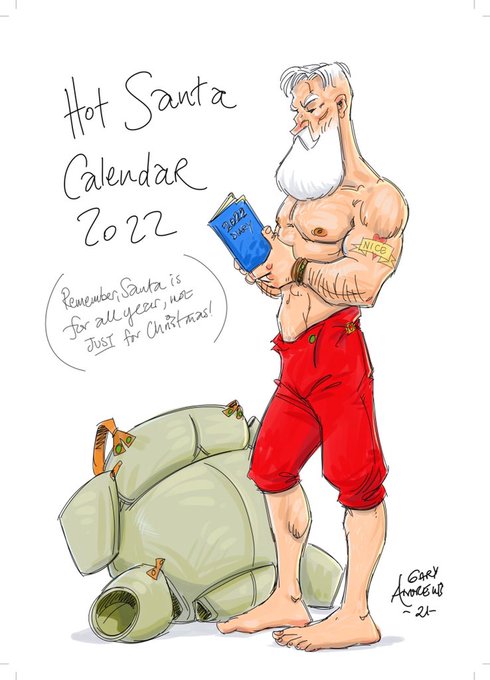 Hot Santa
Calendar
2022
(Remember, Santa is
for all year, not
JUST for Christmas!)
2022
DIARY
NICE
GARY
ANDREWS
~21~